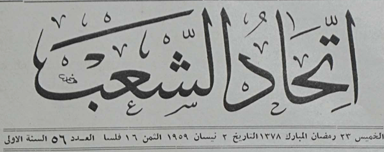 اتّحاد الشّعب
الخميس ٢٣ رمضان المبارك ١٣٧٨ التاريخ ٢ نيسان ١٩٥٩ الثمن ١٦ فلسا العدد ٥٦ السنة الاولى